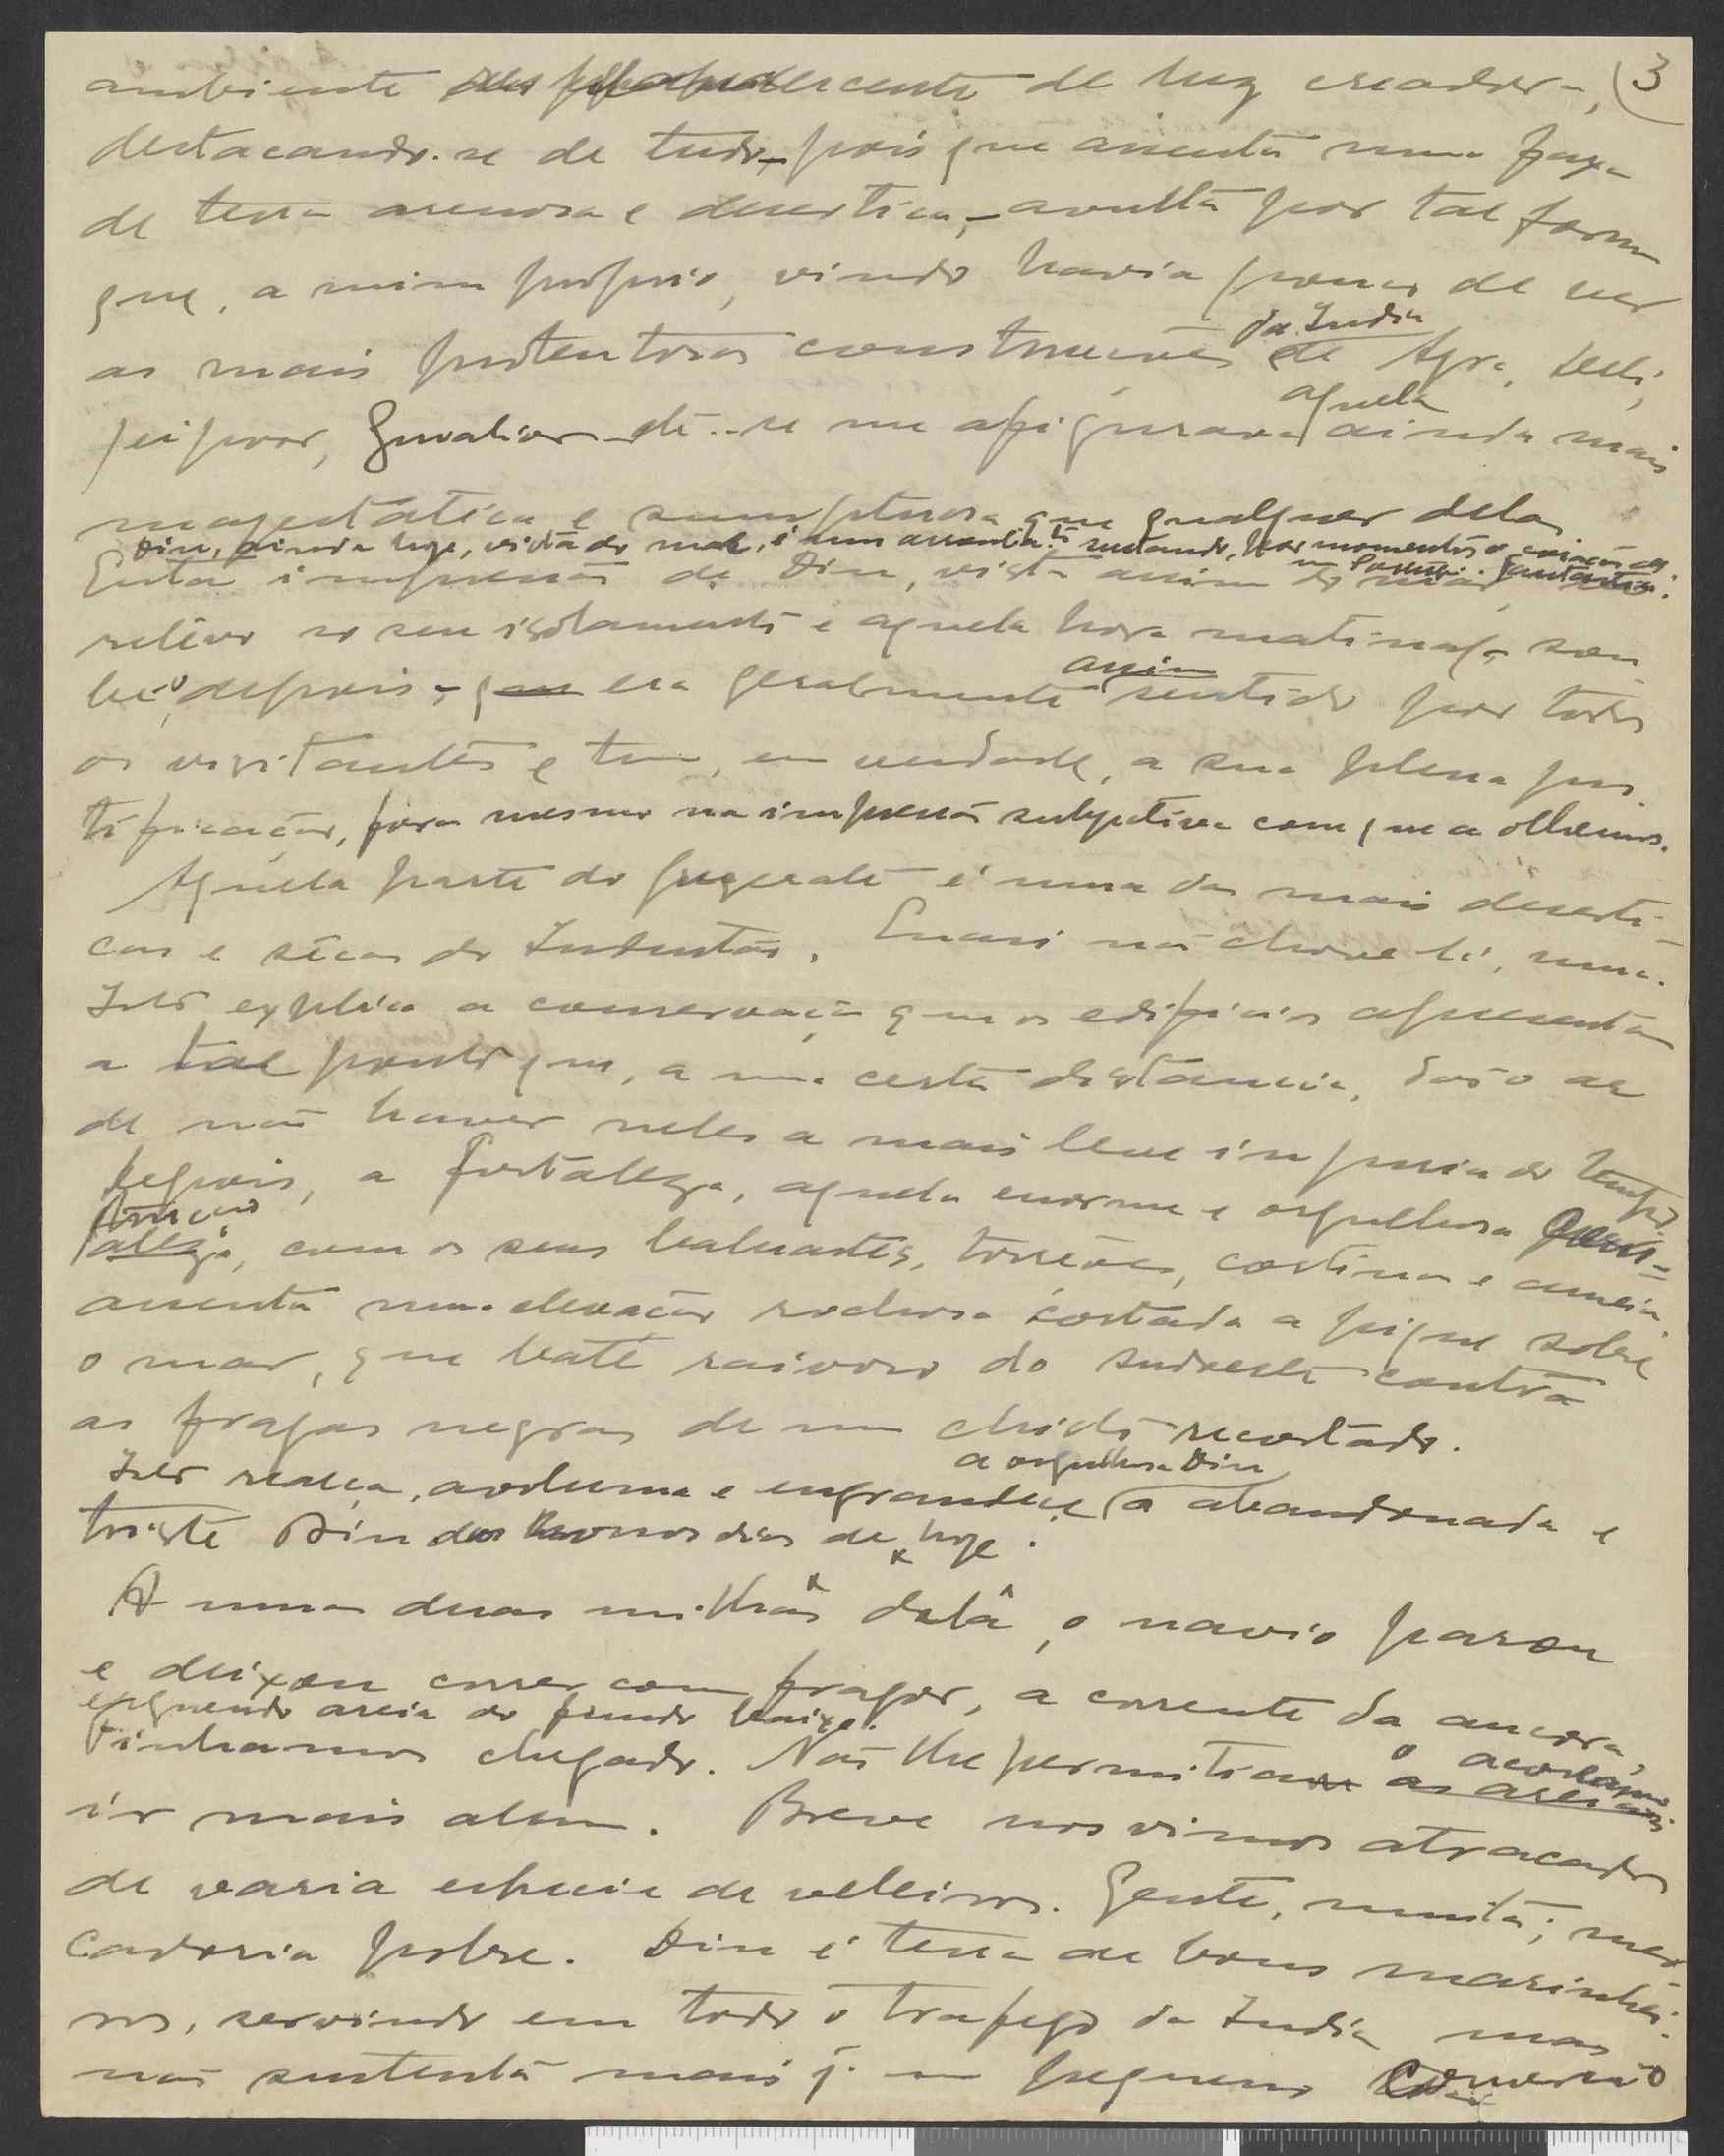 3
ambiente de luz creadora,
destacando-se de tudo - pois que assenta numa faxa
de terra arenosa e desertica, - avulta por tal forma
que, a mim proprio, vindo havia pouco de ver
da India
as mais portentosas construções de Agra, Deli,
aquela
Jeipoor, Gwalior etc.. se me afigurava ainda mais
magestatica e sumptuosa que qualquer delas
Diu, ainda hoje, vista do mar, é um suspendendo, por momentos o coração
Esta impressão de Diu, vista assim do mar,
relêvo no seu isolamento e aquela hora matinal, sou-
assim
be-o depois, - era geralmente sentida por todos
os visitantes e tem, em verdade, a sua plena jus-
tificação, fora mesmo na impressão subjetiva com que a olhamos.
Aquela parte do Guzerate é uma das mais deserti-
cas e sêcas do Industão. Quasi não chove lá, nunca.
Isso explica a conservação que os edificios apresentam
a tal ponto que, a uma certa distancia, dão o ar
de não haver neles a mais leve injuria do tempo
Depois, a fortaleza, aquela enorme e orgulhosa
com os seus baluartes, torreões, cortinas e ameias
assenta numa elevação rochosa cortada a pique sobre
o mar, que bate raivoso do sudoeste contra
as fragas negras de um recortado.
a orgulhosa Diu
Isso realça, avoluma e engrandece a abandonada e
triste Diu dos nossos dias de hoje.
A umas duas milhas dela, o navio parou
e deixou correr com fragor, a corrente da ancora,
erguendo areia do fundo baixo.
Tinhamos chegado. Não lhe permitia o
as areias
ir mais alem. Breve nos vimos atracados
de varia especie de veleiros. Gente, muita; mer-
cadoria pobre. Diu é terra de bons marinhei-
ros, servindo em todo o trafego da India mas
não sustenta mais já um pequeno comercio